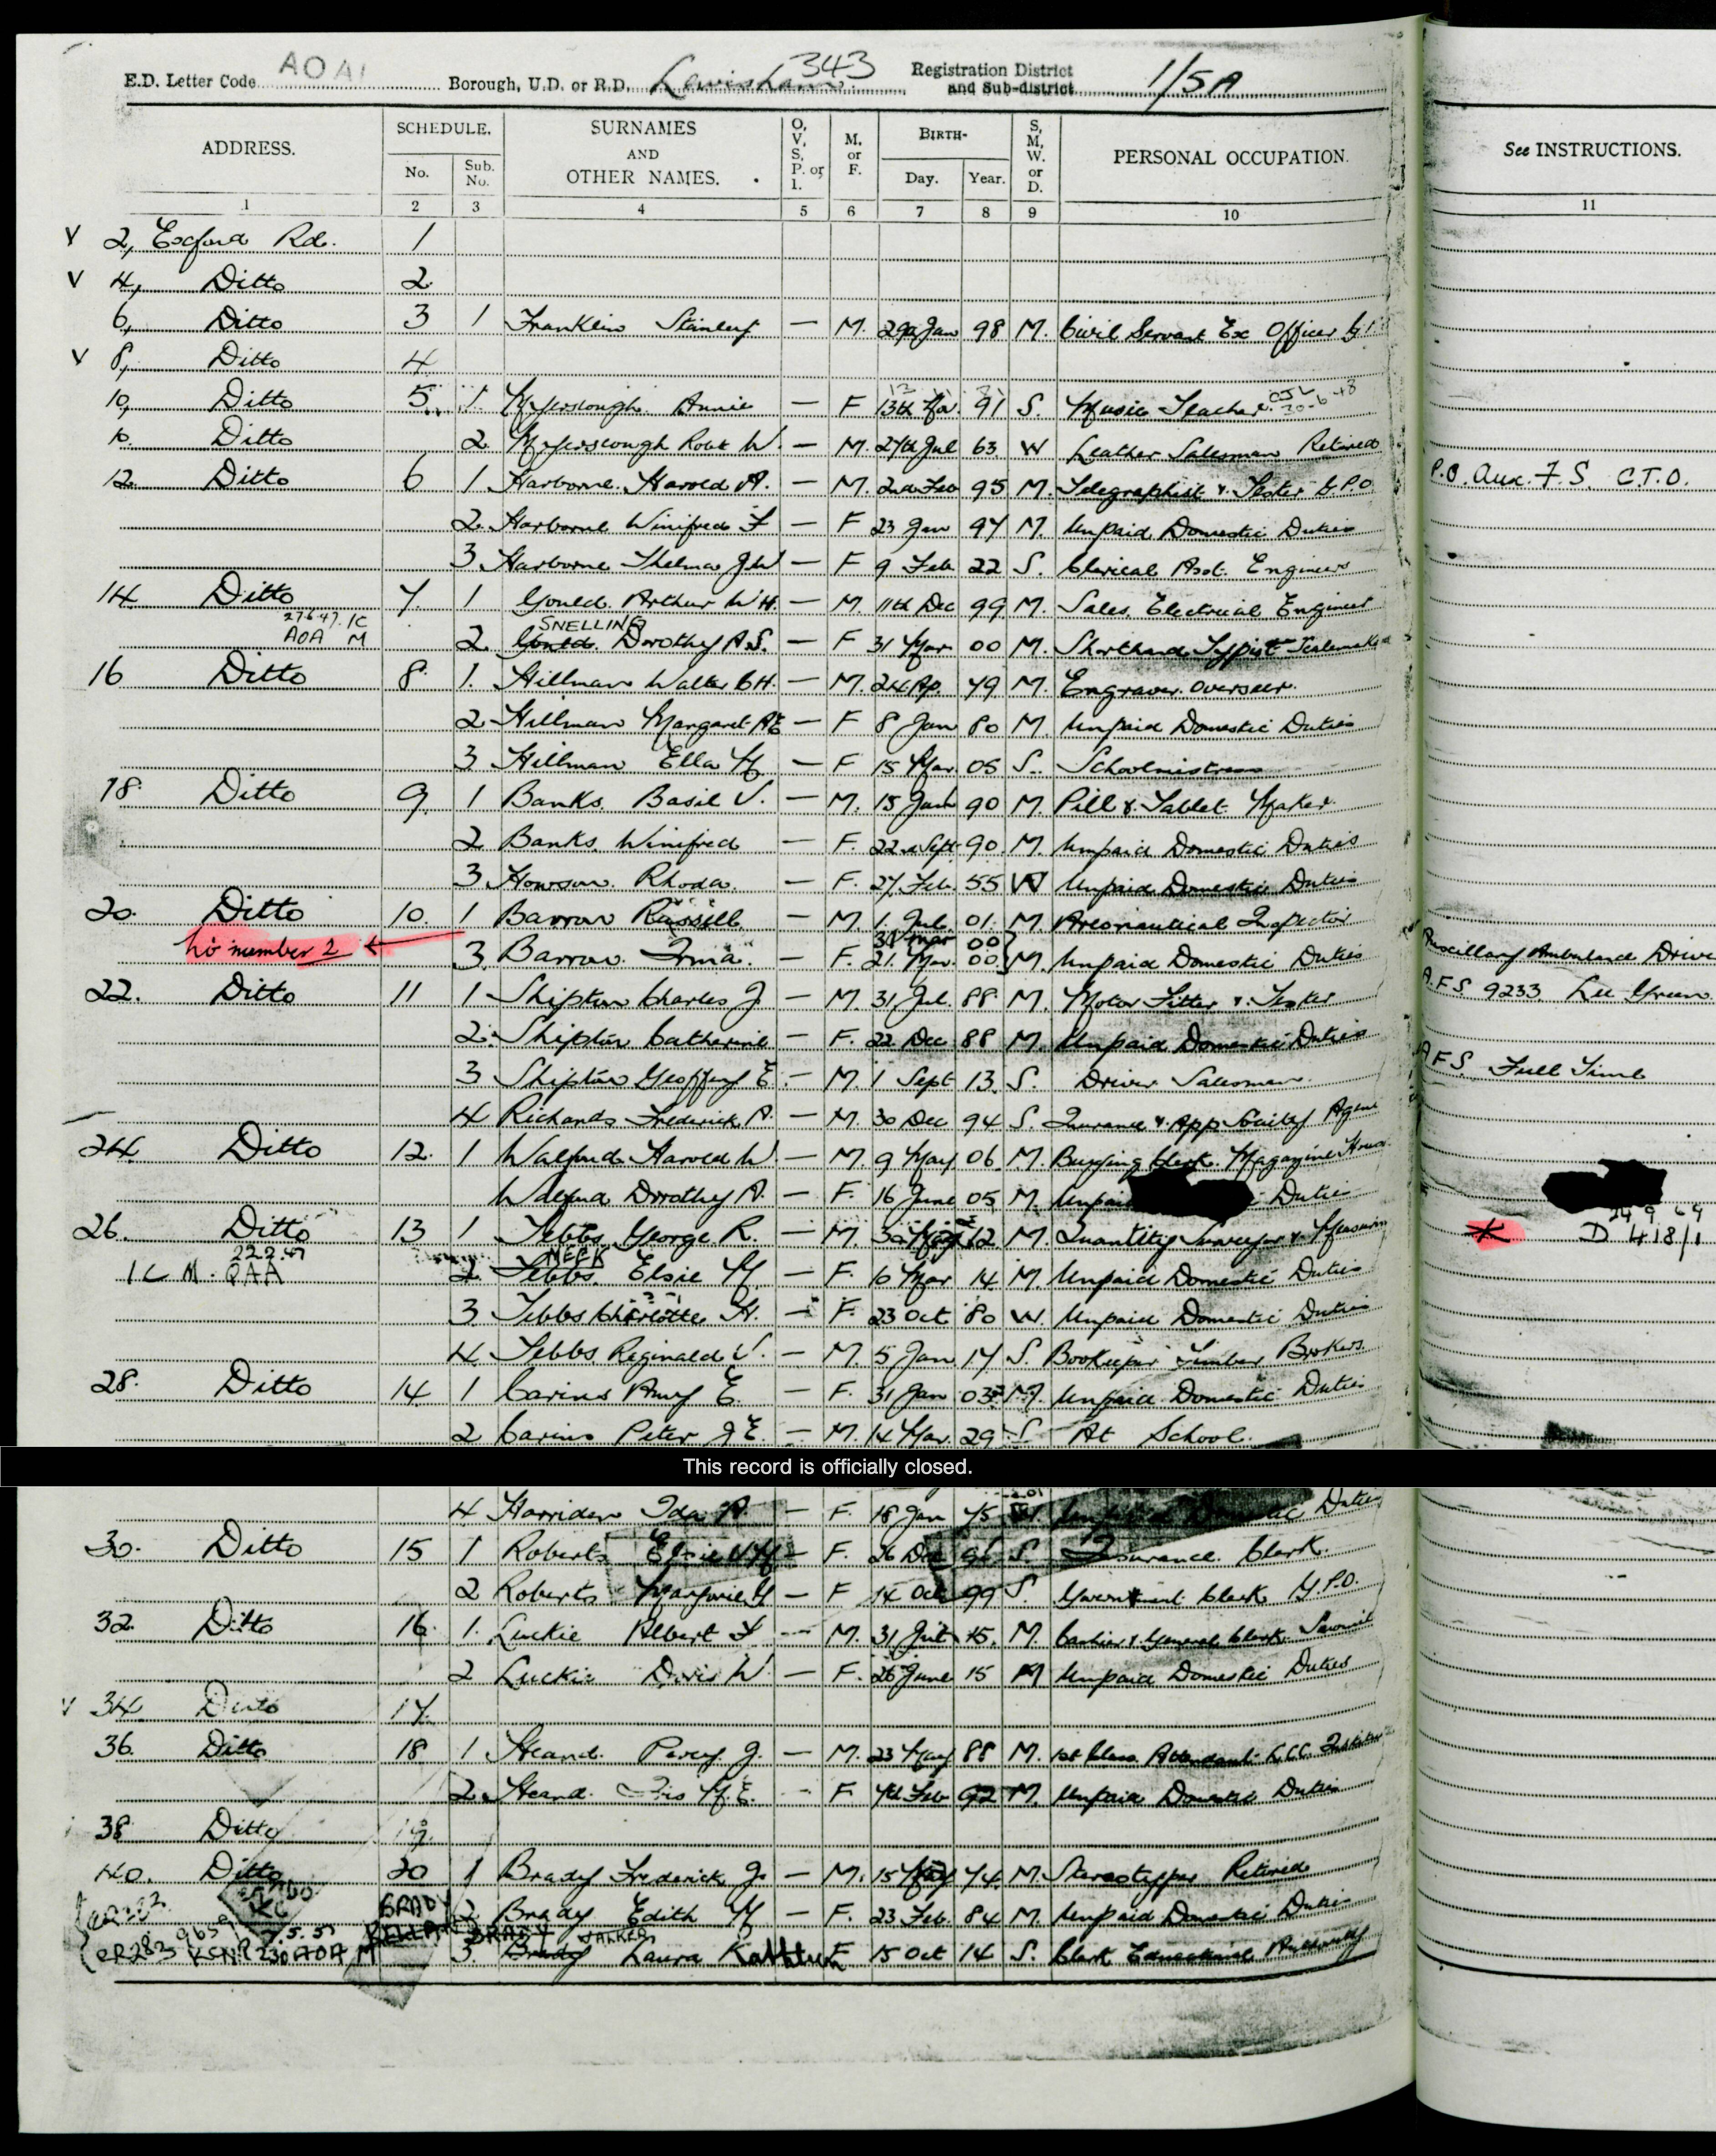 E.D. Letter Code AOA1 Borough, U.D. or R.D. Lewisham 343 Registration District and Sub-district 1/5A
ADDRESS. SCHEDULE. No. Sub. No. SURNAMES AND OTHER NAMES. O, V, S, P. or I. M. or F. BIRTH- Day. Year. S, M, W. or D. PERSONAL OCCUPATION. See INSTRUCTIONS.
1 2 3 4 5 6 7 8 9 10 11
V 2, Exford Rd. 1
V 4, Ditto 2
6, Ditto 3 1 Franklin Stanley — M. 29 Jan 98 M. Civil Servant Ex Officer
V 8, Ditto 4
10, Ditto 5 1 Myerscough Annie — F 13th 91 S. Music Teacher CJL 30-6-48
10. Ditto 2 Myerscough Robt W. — M. 27th Jul 63 W Leather Salesman Retired
12 Ditto 6 1 Harborne Harold A. — M. 2nd Feb 95 M. Telegraphist & Tester G.P.O P.O. Aux. F.S. C.T.O.
2 Harborne Winifred F — F 23 Jan 97 M. Unpaid Domestic Duties
3 Harborne Thelma J W — F 9 Feb 22 S. Clerical Asst. Engineers
14 Ditto 7 1 Gould Arthur W H. — M. 11th Dec 99 M. Sales Electrical Engineer
27.6.47. 1C AOA M SNELLING
2 Gould Dorothy A.S. — F 31 Mar 00 M. Shorthand Typist
16 Ditto 8 1. Hillman Walter C H. — M. 24 Ap. 79 M. Engraver Overseer.
2 Hillman Margaret A E — F 8 Jan 80 M. Unpaid Domestic Duties
3 Hillman Ella M — F 15 Mar 05 S. Schoolmistress
18 Ditto 9 1 Banks Basil V. — M. 15 90 M. Pill & Tablet Maker
2 Banks Winifred — F. 22nd Sept 90. M. Unpaid Domestic Duties
3 Howson Rhoda — F. 27. Feb. 55 W Unpaid Domestic Duties
20. Ditto 10. 1 Barrow Russell — M. 1 01. M. Areonautical Inspector
31 Mar 00
no number 2 ← 3. Barrow Irma. — F. 21. Mar. 00 M. Unpaid Domestic Duties Auxillary Ambulance Drive
22. Ditto 11 1 Shipton Charles J — M. 31 Jul. 88 M. Motor Fitter & Tester A.F.S. 9233 Lee Green
2. Shipton Catherine — F. 22 Dec 88 M. Unpaid Domestic Duties
3 Shipton Geoffrey E. — M. 1 Sept 13 S. Driver Salesman A.F.S. Full Time
4 Richards Frederick A. — M. 30 Dec 94 S. Insurance & App Society Agent
24 Ditto 12. 1 Walford Harold W — M. 9 May 06 M. Buying Clerk Magazine House
Walford Dorothy A. — F. 16 June 05 M. Unpaid Duties
26. Ditto 13 1 Tebbs George R. — M. 12 M. Quantity Surveyor & D 418/1
22.2.47 MEEK
1C M. QAA 2 Tebbs Elsie M — F. 10 Mar 14 M. Unpaid Domestic Duties
3 Tebbs Charlotte H. — F. 23 Oct 80 W. Unpaid Domestic Duties
4 Tebbs Reginald V. — M. 5 Jan 17 S. Bookeeper Timber Brokers
28. Ditto 14 1 Carins Amy E. — F. 31 Jan 03 M. Unpaid Domestic Duties
2 Carins Peter J E. — M. 14 Mar. 29 S At School.
This record is officially closed.
4 Harriden Ida A. — F. 18 Jan 75 W. Unpaid Domestic Duties
30. Ditto 15 1 Roberts Elsie — F. 26 Dec S. Insurance Clerk.
2 Roberts — F 14 Oct 99 S. Clerk G.P.O.
32 Ditto 16 1. Luckie Albert F — M. 31 15. M. Cashier & General Clerk
2 Luckie Doris W — F. 26 June 15 M Unpaid Domestic Duties
V 34 Ditto 17.
36. Ditto 18 1 Heand Percy J. — M. 23 May 88 M. 1st Class Attendant L.C.C.
2 Heand M.E. — F 92 M. Unpaid Domestic Duties
38 Ditto 19.
40. Ditto 20 1 Brady Frederick J. — M. 15 74. M. Stereotyper Retired
BRADY 2 Brady Edith M — F. 23 Feb. 84 M. Unpaid Domestic Duties
BRADY
CR283 AOA M 3. Brady Laura Kathleen F 15 Oct 14 S. Clerk Educational Authority